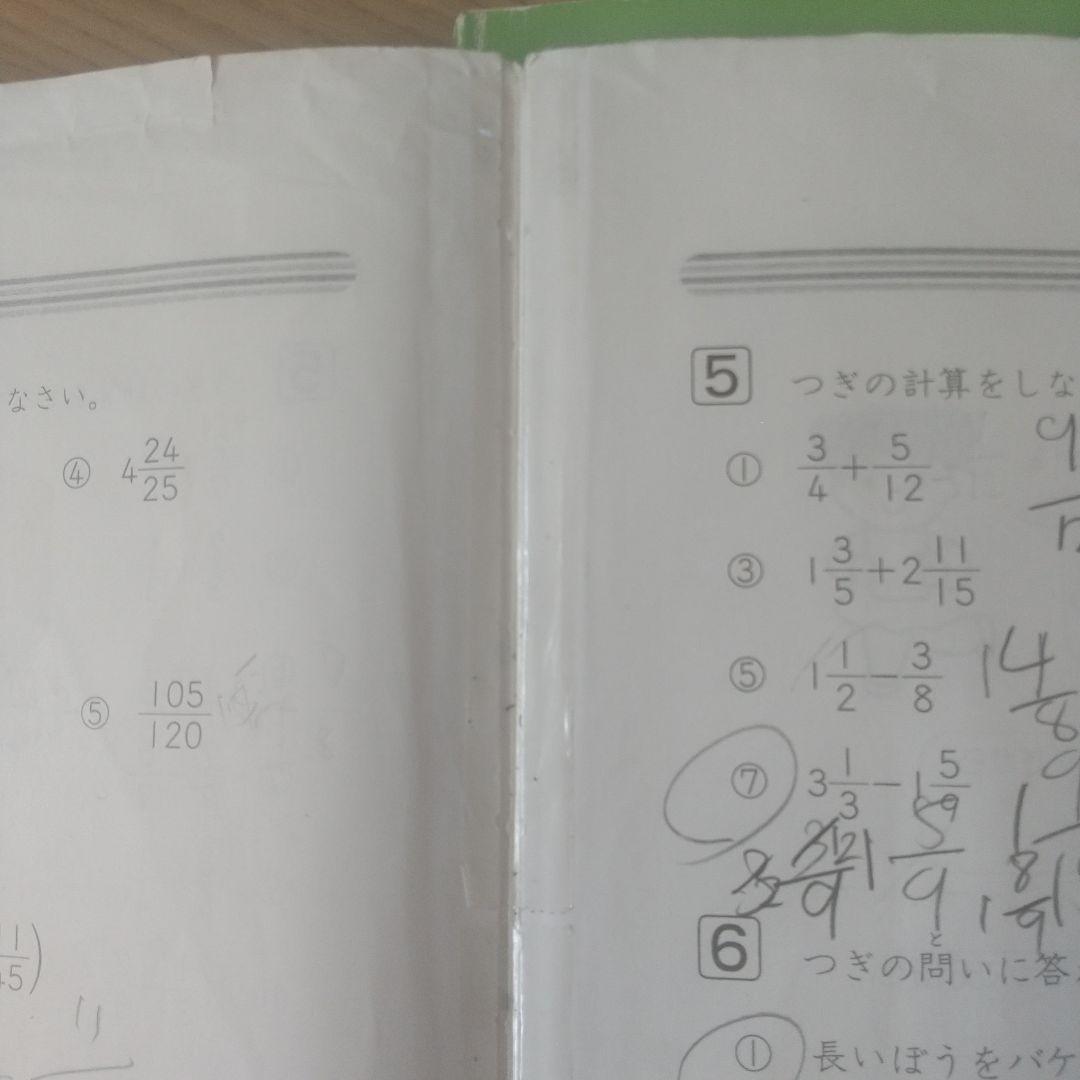 なさい。
④ 4 24/25
⑤ 105/120
11
5 つぎの計算をしな
① 3/4 + 5/12
③ 1 3/5 + 2 11/15
⑤ 1 1/2 − 3/8
14/8
⑦ 3 1/3 − 1 5/9
12/9 1 5/9
1 8/9
6 つぎの問いに答
と
① 長いぼうをバケ